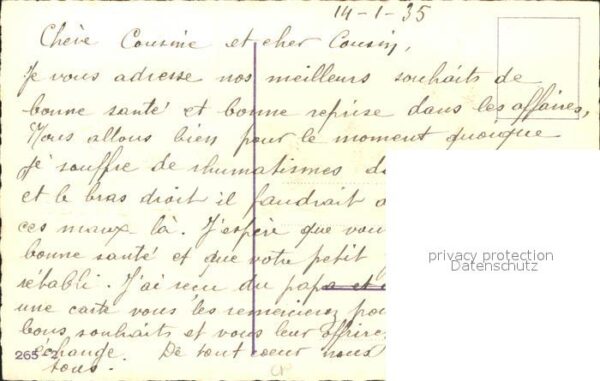 14-1-35
Chère Cousine et cher Cousin,
Je vous adresse nos meilleurs souhaits de
bonne santé et bonne reprise dans les affaires,
Nous allons bien pour le moment quoique
je souffre de rhumatismes
et le bras droit il faudrait
ces maux là. J'espère que
bonne santé et que votre petit
rétabli. J'ai reçu du papa et
une carte vous les remercierez
bons souhaits et vous leur
échange. De tout coeur nous
tous.
privacy protection
Datenschutz
265-2